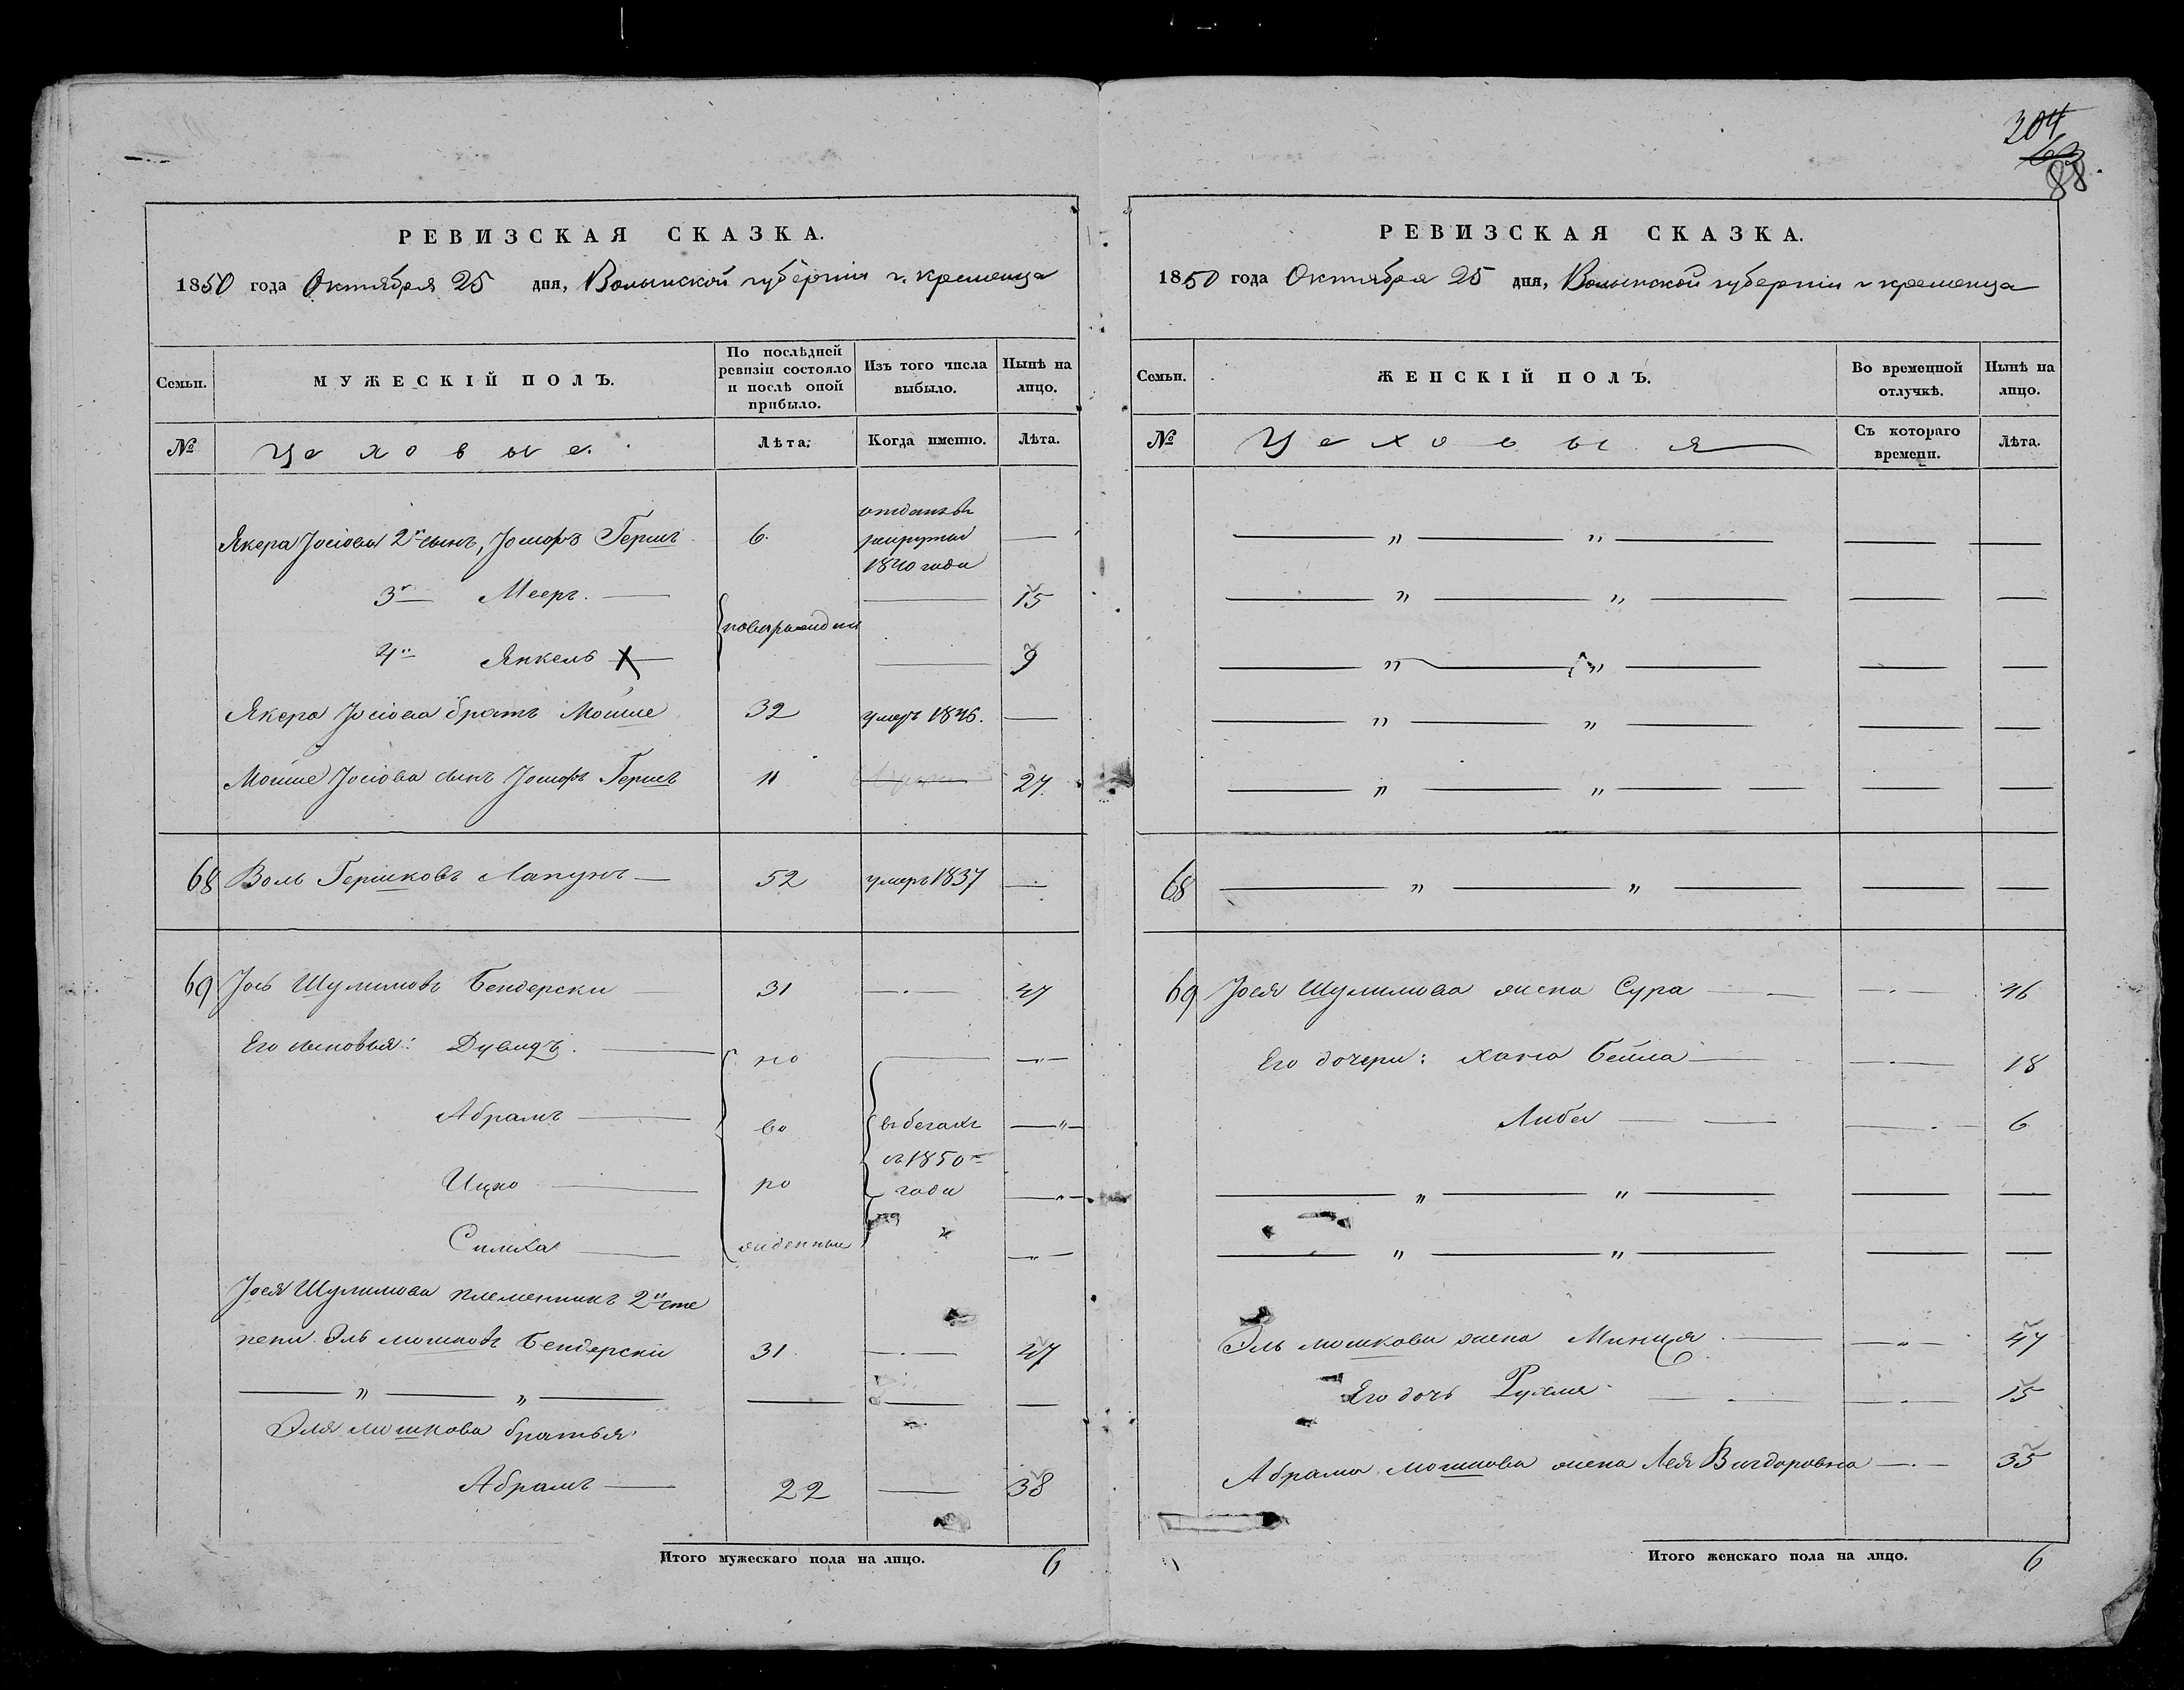 204
63
88
РЕВИЗСКАЯ СКАЗКА.
1850 года Октября 25 дня, Волынской губерніи г. кременца
Семьи.
МУЖЕСКІЙ ПОЛЪ.
По послѣдней ревизіи состояло и послѣ оной прибыло.
Изъ того числа выбыло.
Нынѣ на лицо.
№
Цеховые.
Лѣта.
Когда именно.
Лѣта.
Якера Іосіова 2й сынъ, Іошоръ Гершъ 6. отданъ въ рекруты 1840 года —
3й — Мееръ. — новорожденны — 15
4й Янкель — 9
Якера Іосіова братъ Мошше 32 умеръ 1846. —
Мошше Іосіова сынъ Іошоръ Гершъ 11 — 27
68 Воль Гершковъ Лапунъ — 52 умеръ 1837 —
69 Іось Шулимовъ Бендерски 31 — 47
Его сыновья: Дувидъ. — но — —"—
Абрамъ — во въ бегахъ —"—
съ 1850го
Ицко — ро года —"—
Симха — жденные —"—
Іося Шулимова племенникъ 2й сте
пени Эль мошковъ Бендерскіи 31. — 47
— " — " — — — —
Эля мошкова братья
Абрамъ — 22 — 38
Итого мужескаго пола на лицо. 6
РЕВИЗСКАЯ СКАЗКА.
1850 года Октября 25 дня, Волынской губерніи г кременца
Семьи.
ЖЕНСКІЙ ПОЛЪ.
Во временной отлучкѣ.
Нынѣ на лицо.
№
Цеховыя
Съ котораго времени.
Лѣта.
— " — " — — —
— " — " — — —
— " — " — — —
— " — " — — —
— " — " — — —
68 — " — " — — —
69 Іося Шулимова жена Сура — — 46
Его дочери: Хана Бейла — — 18
Либа — — 6
— " — " — — —
— " — " — — —
Эль мошкова жена Минця — — 47
Его дочь Рухля — — 15
Абрама мошкова жена Лея Вигдоровна — 35
Итого женскаго пола на лицо. 6